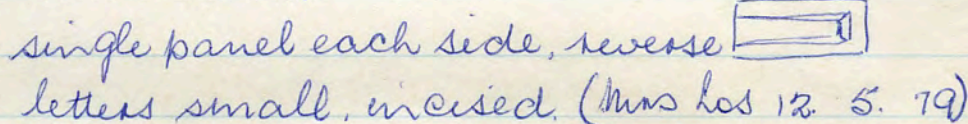 single panel each side, reverse
letters small, incised. (Mrs Los 12. 5. 79)